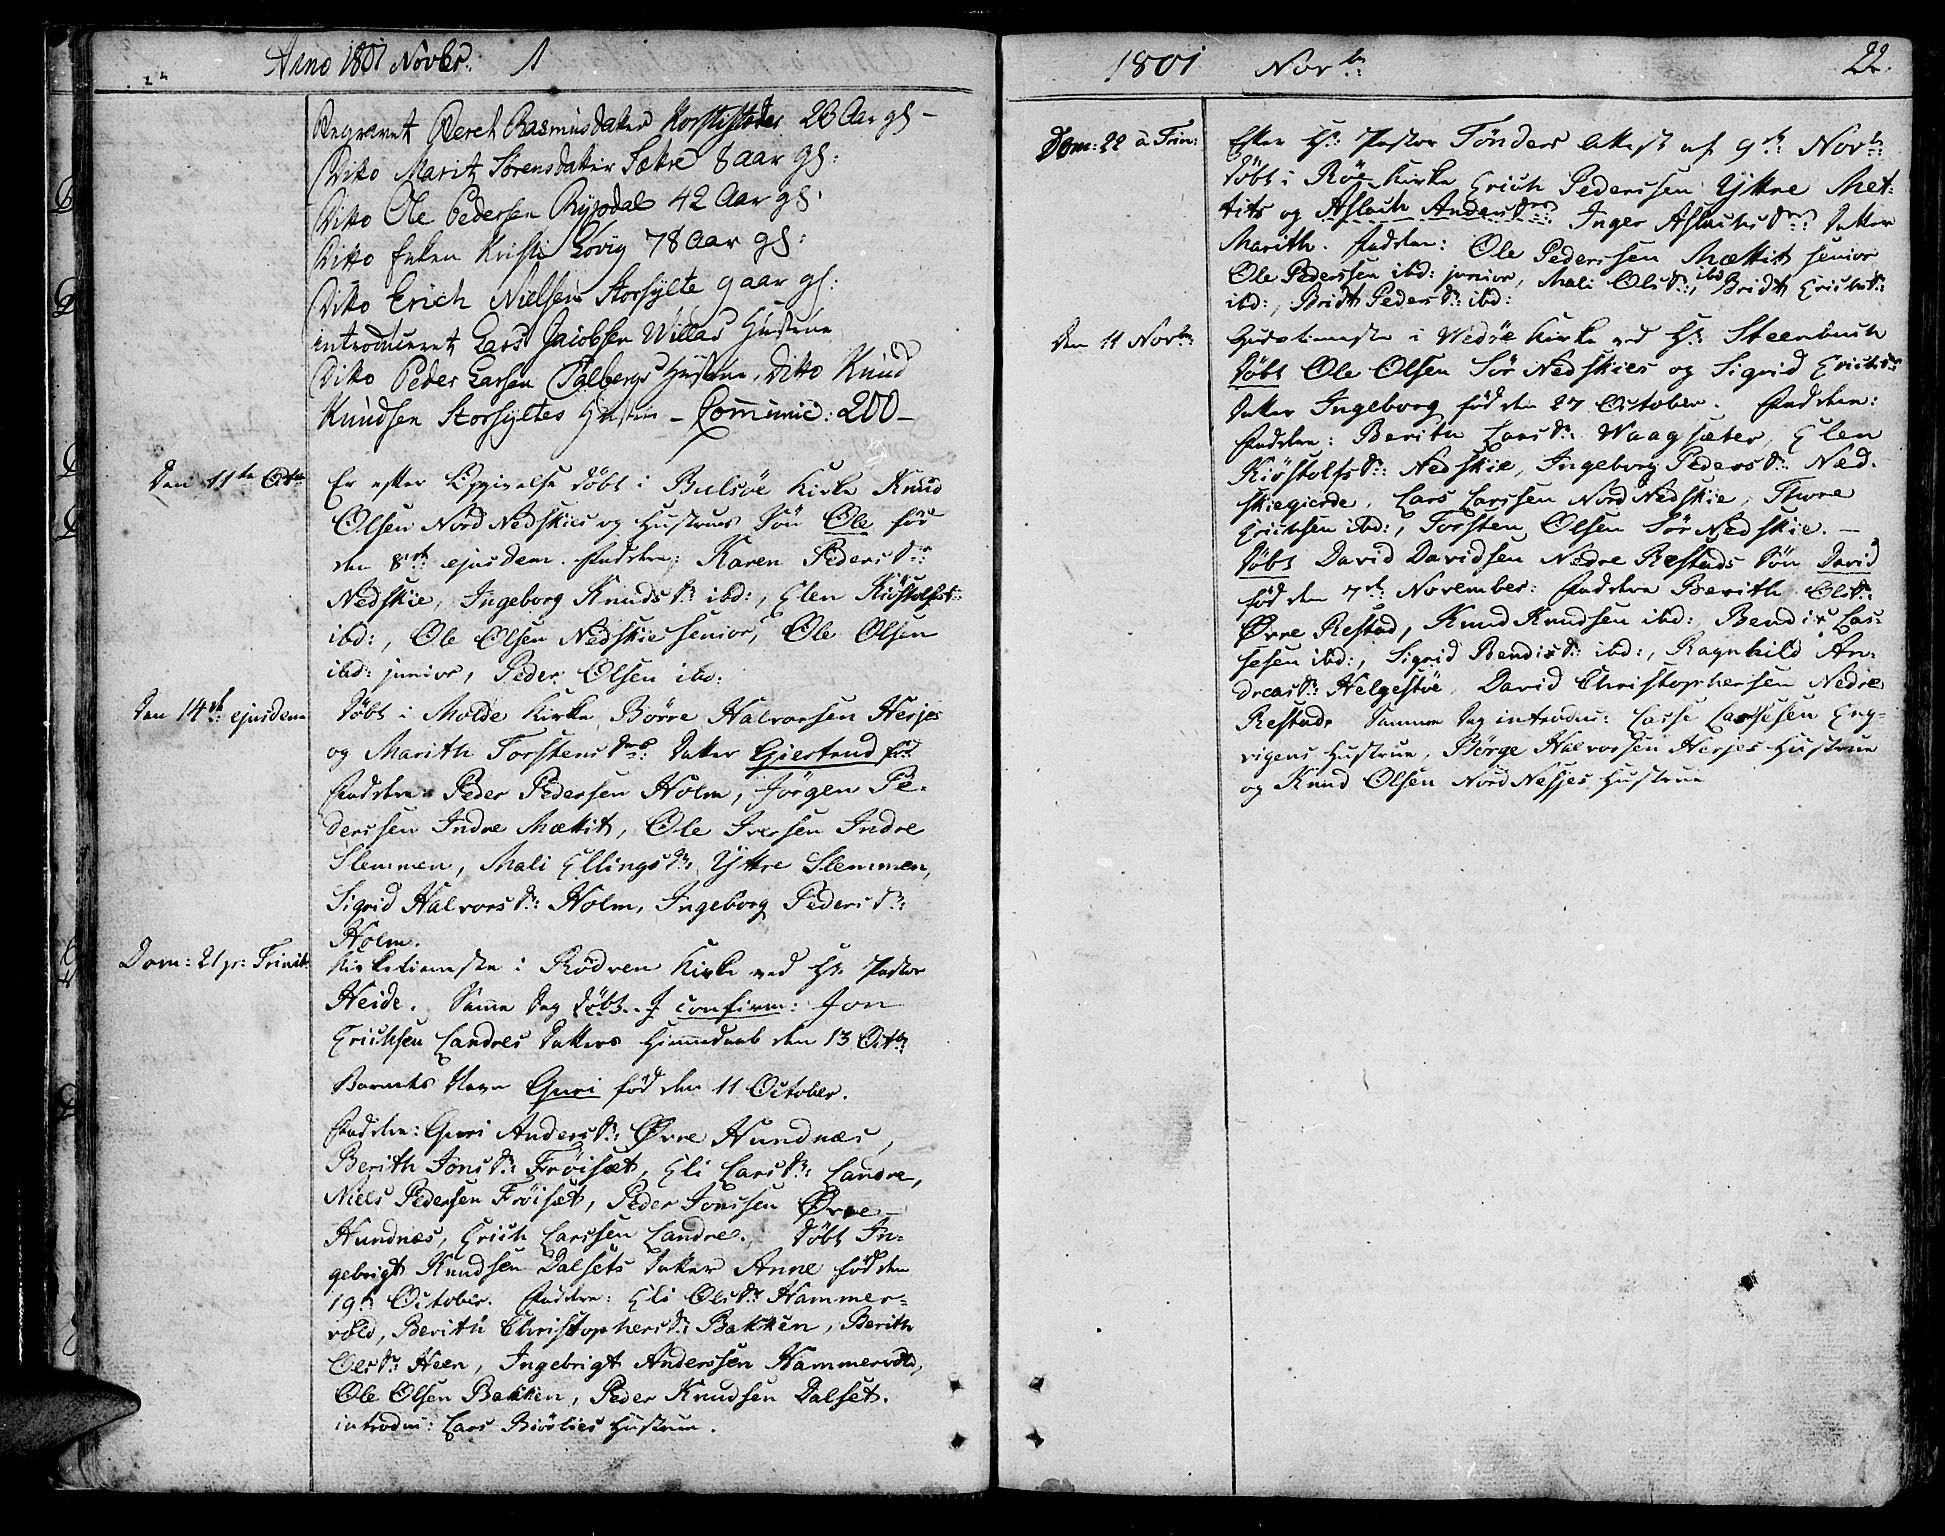 Anno 1801 Novbr: 1
Begravet Beret Rasmusdatter 23 Aar gl: -
Ditto Marit Sørensdatter Sætre 8 aar gl:
Ditto Ole Pedersen Rypdal 42 Aar gl:
Ditto Enken Kristi Løvig 78 Aar gl:
Ditto Erich Nielsen Storhylte 9 aar gl:
introduceret Lars Jacobsen Hustrue
Ditto Peder Larsen Palbergs Hustrue, Ditto Knud
Knudsen Storhyltes Hustrue - Communic: 200 -
Den 11te Octr:
Er efter Opgivelse døbt i Bulsøe Kirke Knud
Olsen Nord Nedskies og Hustrues Søn Ole fød
den 8de ejusdem. Faddere: Karen Peders Dr:
Nedskie, Ingeborg Knuds Dr: ibd:, Elen Kiøstolfs Dr:
ibd:, Ole Olsen Nedskie senior, Ole Olsen
ibd: junior, Peder Olsen ibd:
Den 14de: ejusdem
Døbt i Molde Kirke, Børre Halvorsen Herjes
og Marith Torstens Drs: Datter Giertrud fød
Faddere Peder Pedersen Holm, Jörgen Pe-
derssen Indre Mættit, Ole Iversen Indre
Slemmen, Mali Ellings Dr: Yttre Slemmen,
Sigrid Halvors Dr: Holm, Ingeborg Peders Dr:
Holm.
Dom: 21 p: Trinit:
Kirketieneste i Rödven Kirke ved Hr: Pastor
Heide. Samme Dag døbt. confirm: Jon
Erichsen Landres Datters Hiemmedaab den 13 Octbr:
Barnets Navn Guri fød den 11 October.
Faddere: Guri Anders Dr: Øvre Hundnæs,
Berith Jons Dr: Frøisæt, Eli Lars Dr: Landre,
Niels Pedersen Frøisæt, Peder Jonssen Øvre
Hundnæs, Erich Larssen Landre. Døbt In-
gebrigt Knudsen Dalsets Datter Anne fød den
19de October. Faddere: Eli Ols Dr: Hammer-
vold, Berith Christophers Dr: Bakken, Berith
Ols Dr: Heen, Ingebrigt Anderssen Hammervold,
Ole Olsen Bakken, Peder Knudsen Dalset.
introdu: Lars Biölies Hustrue.
1801 Novbr:
22.
Dom: 22 a Trin:
Efter Hr: Pastor Tønders Attest af 9de: Novbr:
døbt i Röe Kirke Erich Pederssen Yttre Met-
tits og Aslach Anders Drs: Inger Aslachs Drs: Datter
Marith. Faddere: Ole Pederssen Mættit senior
Ole Pederssen ibd: junior, Mali Ols Dr:, ibd Bridt Erichs Dr:
ibd:, Bridt Peders Dr: ibd:
Den 11 Novbr:
Gudstieneste i Wedöe Kirke ved Hr: Steenbuch
Döbt Ole Olsen Sör Nedskies og Sigrid Erichs Drs
Datter Ingeborg fød den 27 October. Faddere:
Faddere: Berith Lars Dr: Waagsæter, Elen
Kiöstolfs Dr: Nedskie, Ingeborg Peders Dr: Ned-
skiegierde, Lars Larssen Nord Nedskie, Thore
Erichsen ibd:, Torsten Olsen Sör Nedskie. -
Döbt David Davidsen Nedre Restads Søn David
fød den 7de: November: Faddere Berith Ols Dr:
Øvre Restad, Knud Knudsen ibd:, Bendix Las-
sesen ibd:, Sigrid Bendix Dr: ibd:, Ragnhild An-
dreas Dr: Helgestöe, David Christophersen Nedre
Restad. Samme Dag introdu: Lasse Lassesen Eng-
vigens Hustrue, Børge Halvorssen Herjes Hustrue
og Knud Olsen Nord Nesjes Hustrue